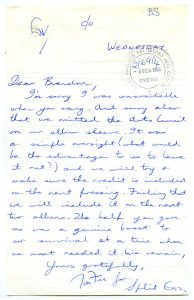 BS
c/o
WEDNESDAY
Dear Brandon,
I'm sorry I was unavailable
when you rang. And sorry also
that we omitted the Arts Council
on our album sleeve. It was
a simple oversight (what would
be the advantage to us to leave
it out?) and we will try &
make sure the credit is included
on the next pressing. Failing that
we will include it on the next
two albums. The help you gave
us was a genuine boost to
our survival at a time when
we most needed it. We remain,
Yours gratefully,
Tim Finn for
Split Enz.